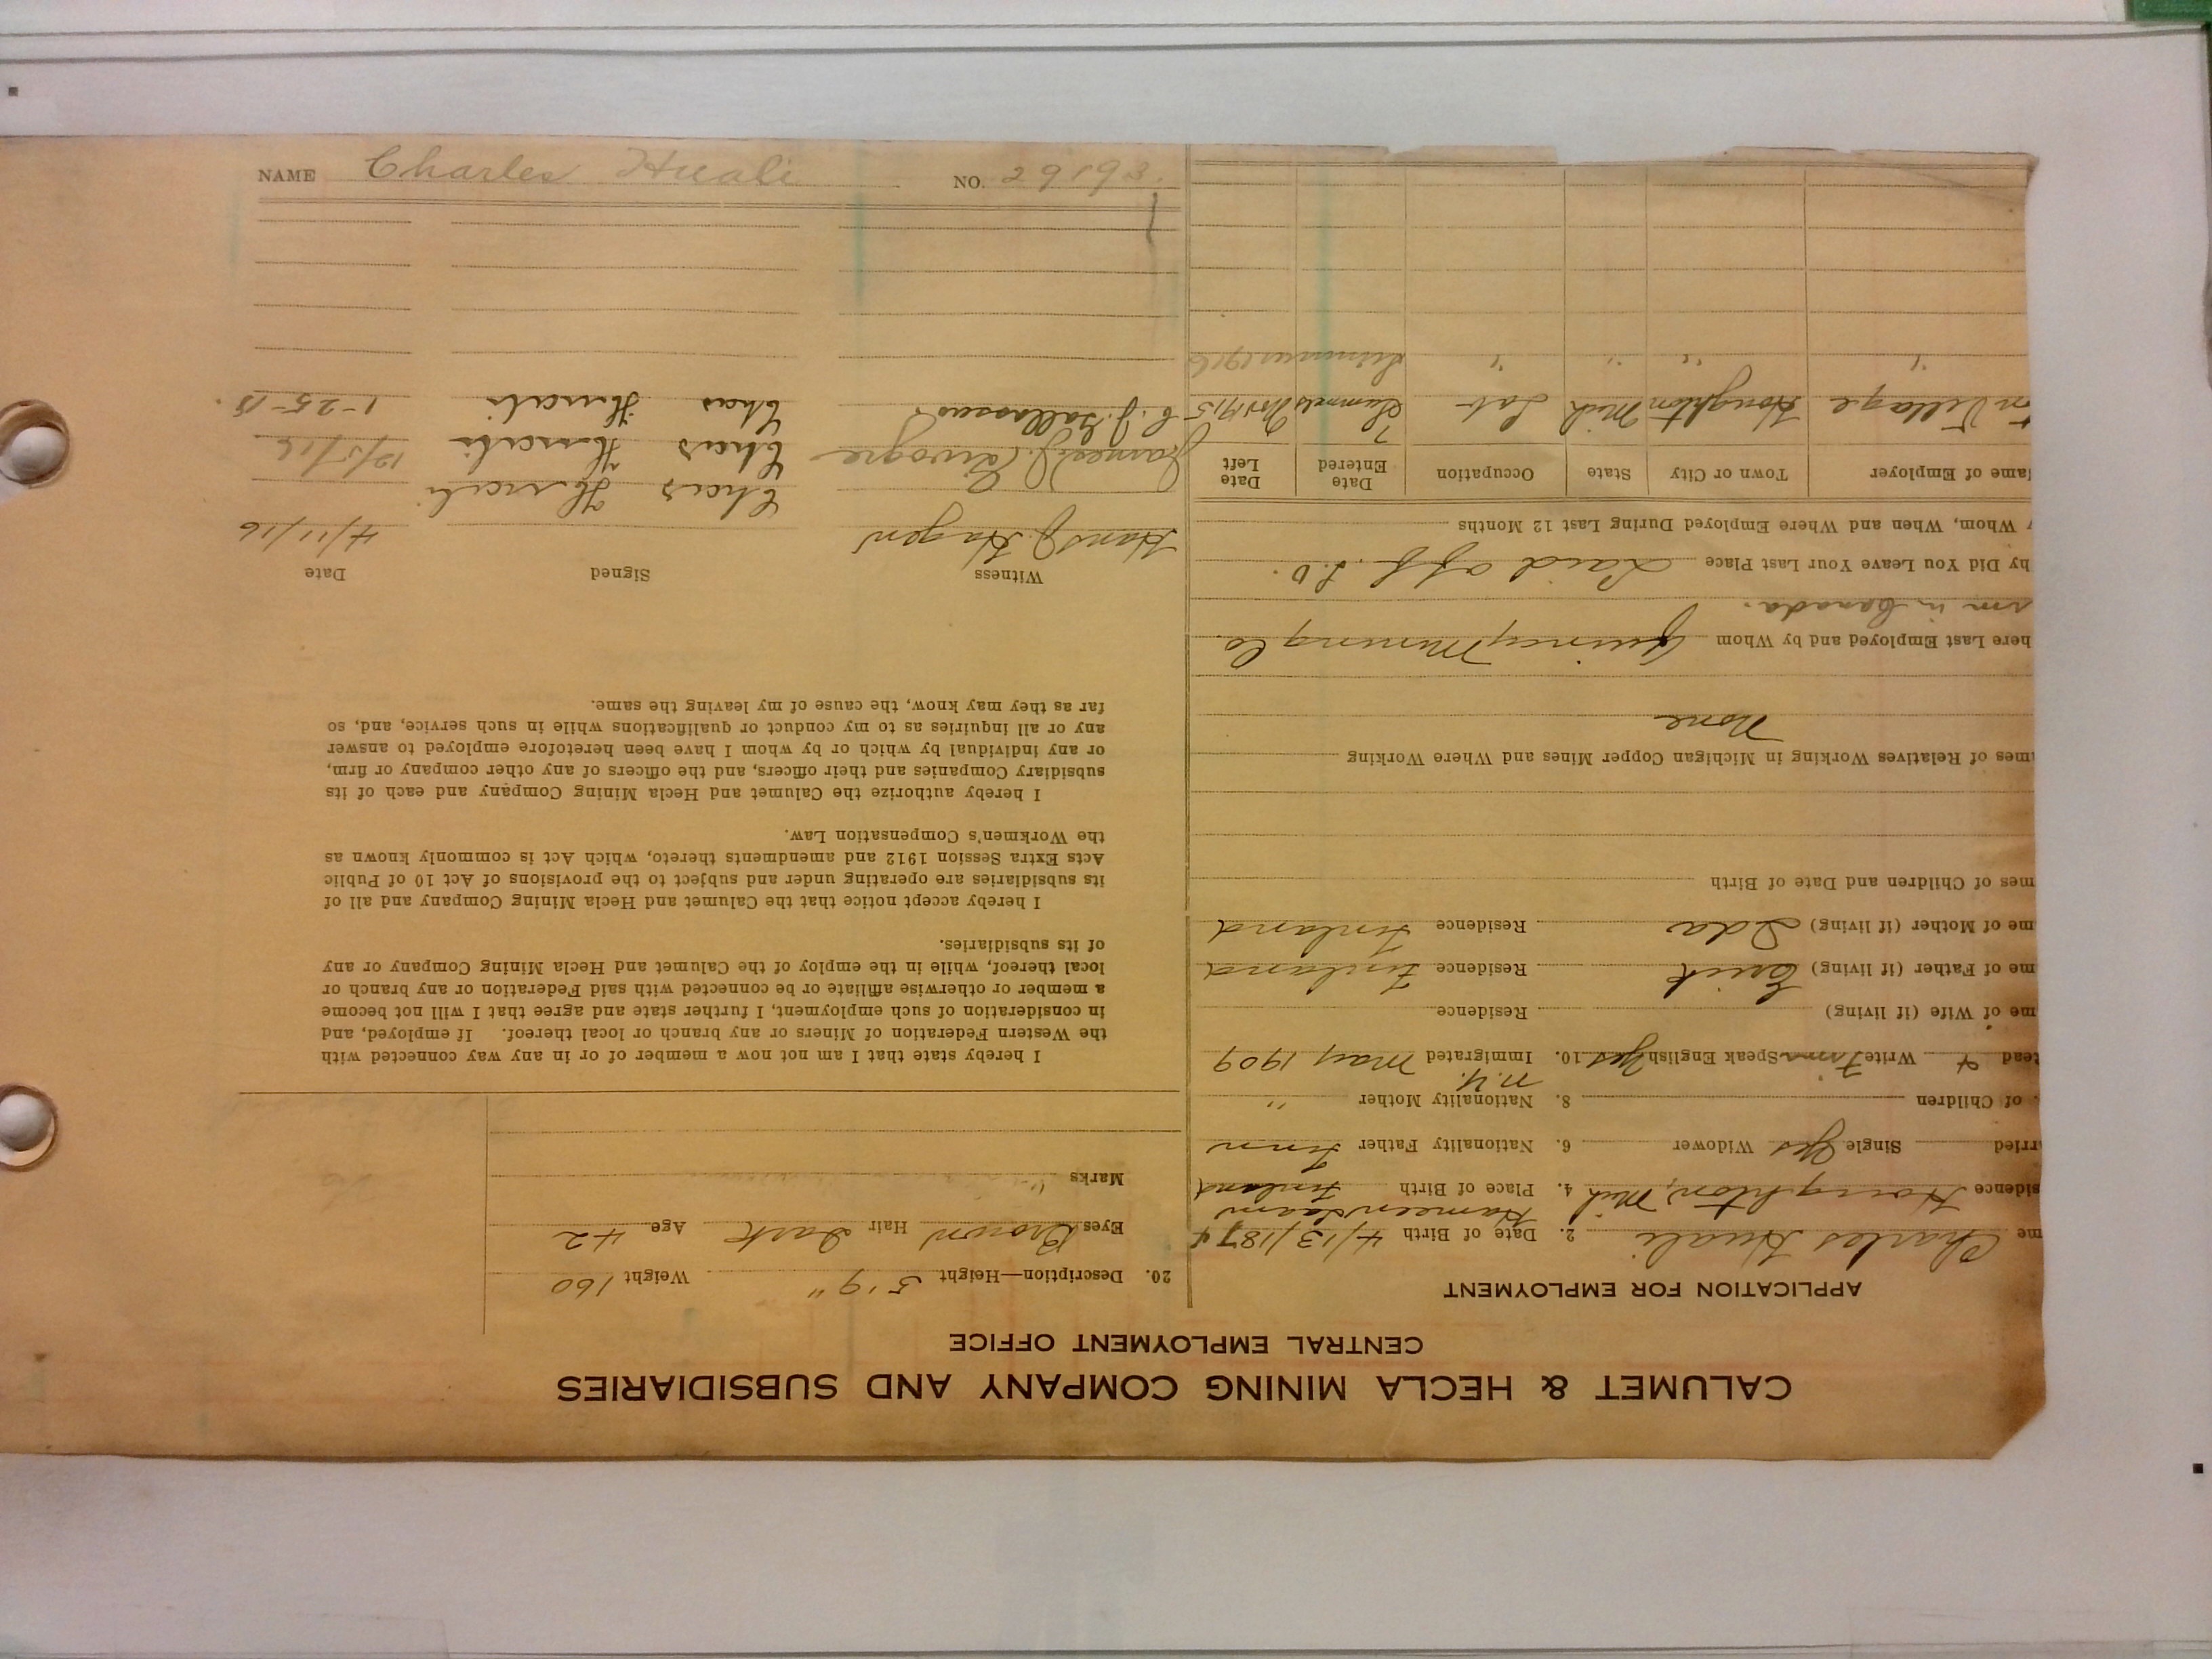 CALUMET & HECLA MINING COMPANY AND SUBSIDIARIES
CENTRAL EMPLOYMENT OFFICE
APPLICATION FOR EMPLOYMENT
me Charles Huali 2. Date of Birth 4/13/1874
sidence Houghton, Mich 4. Place of Birth Finland
rried Single Yes Widower 6. Nationality Father Finn
. of Children 8. Nationality Mother "
n.y.
Read & Write Finn Speak English Yes 10. Immigrated May 1909
me of Wife (if living) Residence
me of Father (if living) Erick Residence Finland
me of Mother (if living) Ida Residence Finland
mes of Children and Date of Birth
mes of Relatives Working in Michigan Copper Mines and Where Working
None
here Last Employed and by Whom Quincy Mining Co
in Canada.
hy Did You Leave Your Last Place Laid off.
y Whom, When and Where Employed During Last 12 Months
ame of Employer Town or City State Occupation Date Entered Date Left
n Village Houghton Mich Lab ? Summer Nov 1915
" " " " Summer 1916
20. Description—Height 5'9" Weight 160
Eyes Brown Hair Dark Age 42
Marks
I hereby state that I am not now a member of or in any way connected with
the Western Federation of Miners or any branch or local thereof. If employed, and
in consideration of such employment, I further state and agree that I will not become
a member or otherwise affiliate or be connected with said Federation or any branch or
local thereof, while in the employ of the Calumet and Hecla Mining Company or any
of its subsidiaries.
I hereby accept notice that the Calumet and Hecla Mining Company and all of
its subsidiaries are operating under and subject to the provisions of Act 10 of Public
Acts Extra Session 1912 and amendments thereto, which Act is commonly known as
the Workmen's Compensation Law.
I hereby authorize the Calumet and Hecla Mining Company and each of its
subsidiary Companies and their officers, and the officers of any other company or firm,
or any individual by which or by whom I have been heretofore employed to answer
any or all inquiries as to my conduct or qualifications while in such service, and, so
far as they may know, the cause of my leaving the same.
Witness Signed Date
Hans J. Hagen 4/11/16
Chas Huali
James J. Chas Huali
C. J. Chas Huali 1-25-18
NAME Charles Huali NO. 29193.